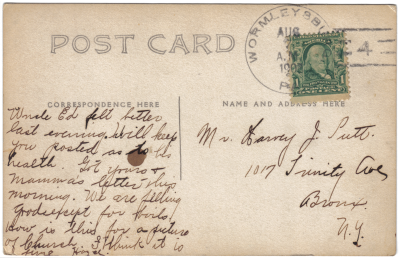 POST CARD
WORMLEYSBU
AUG
A.M
190
P
4
1
1
CORRESPONDENCE HERE
NAME AND ADDRESS HERE
Uncle Ed felt better
last evening. Will keep
you posted as to his
health. Got yours &
Mamma's letter this
morning. We are feeling
good except for boils.
How is this for a picture
of Church. I think it is
fine.
Mr. Harvey J.
1017 Trinity Ave
Bronx.
N.Y.